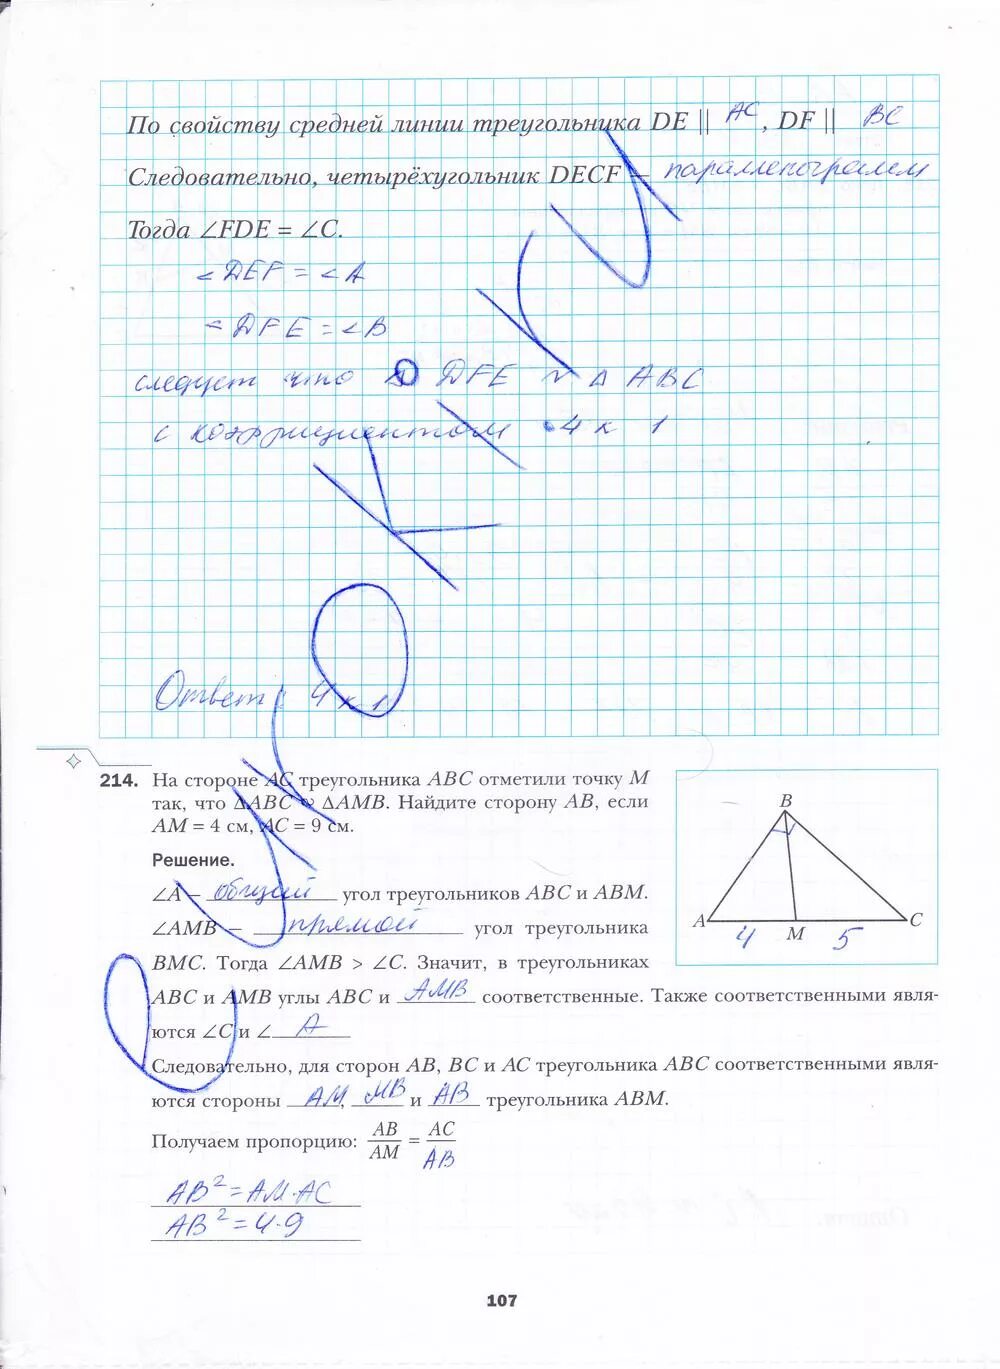 По свойству средней линии треугольника DE || AC, DF || BC
Следовательно, четырёхугольник DECF – параллелограмм
Тогда ∠FDE = ∠C.
∠DEF = ∠A
∠DFE = ∠B
следует что Δ DFE ~ Δ ABC
с коэффициентом 4 к 1
Ответ: 4 к 1
214. На стороне AC треугольника ABC отметили точку M
так, что ΔABC ∾ ΔAMB. Найдите сторону AB, если
AM = 4 см, AC = 9 см.
Решение.
∠A – общий угол треугольников ABC и ABM.
∠AMB – прямой угол треугольника
BMC. Тогда ∠AMB > ∠C. Значит, в треугольниках
ABC и AMB углы ABC и AMB соответственные. Также соответственными явля-
ются ∠C и ∠ A
Следовательно, для сторон AB, BC и AC треугольника ABC соответственными явля-
ются стороны AM, MB и AB треугольника ABM.
Получаем пропорцию: AB/AM = AC/AB
AB² = AM·AC
AB² = 4·9
B
A
M
C
4
5
107